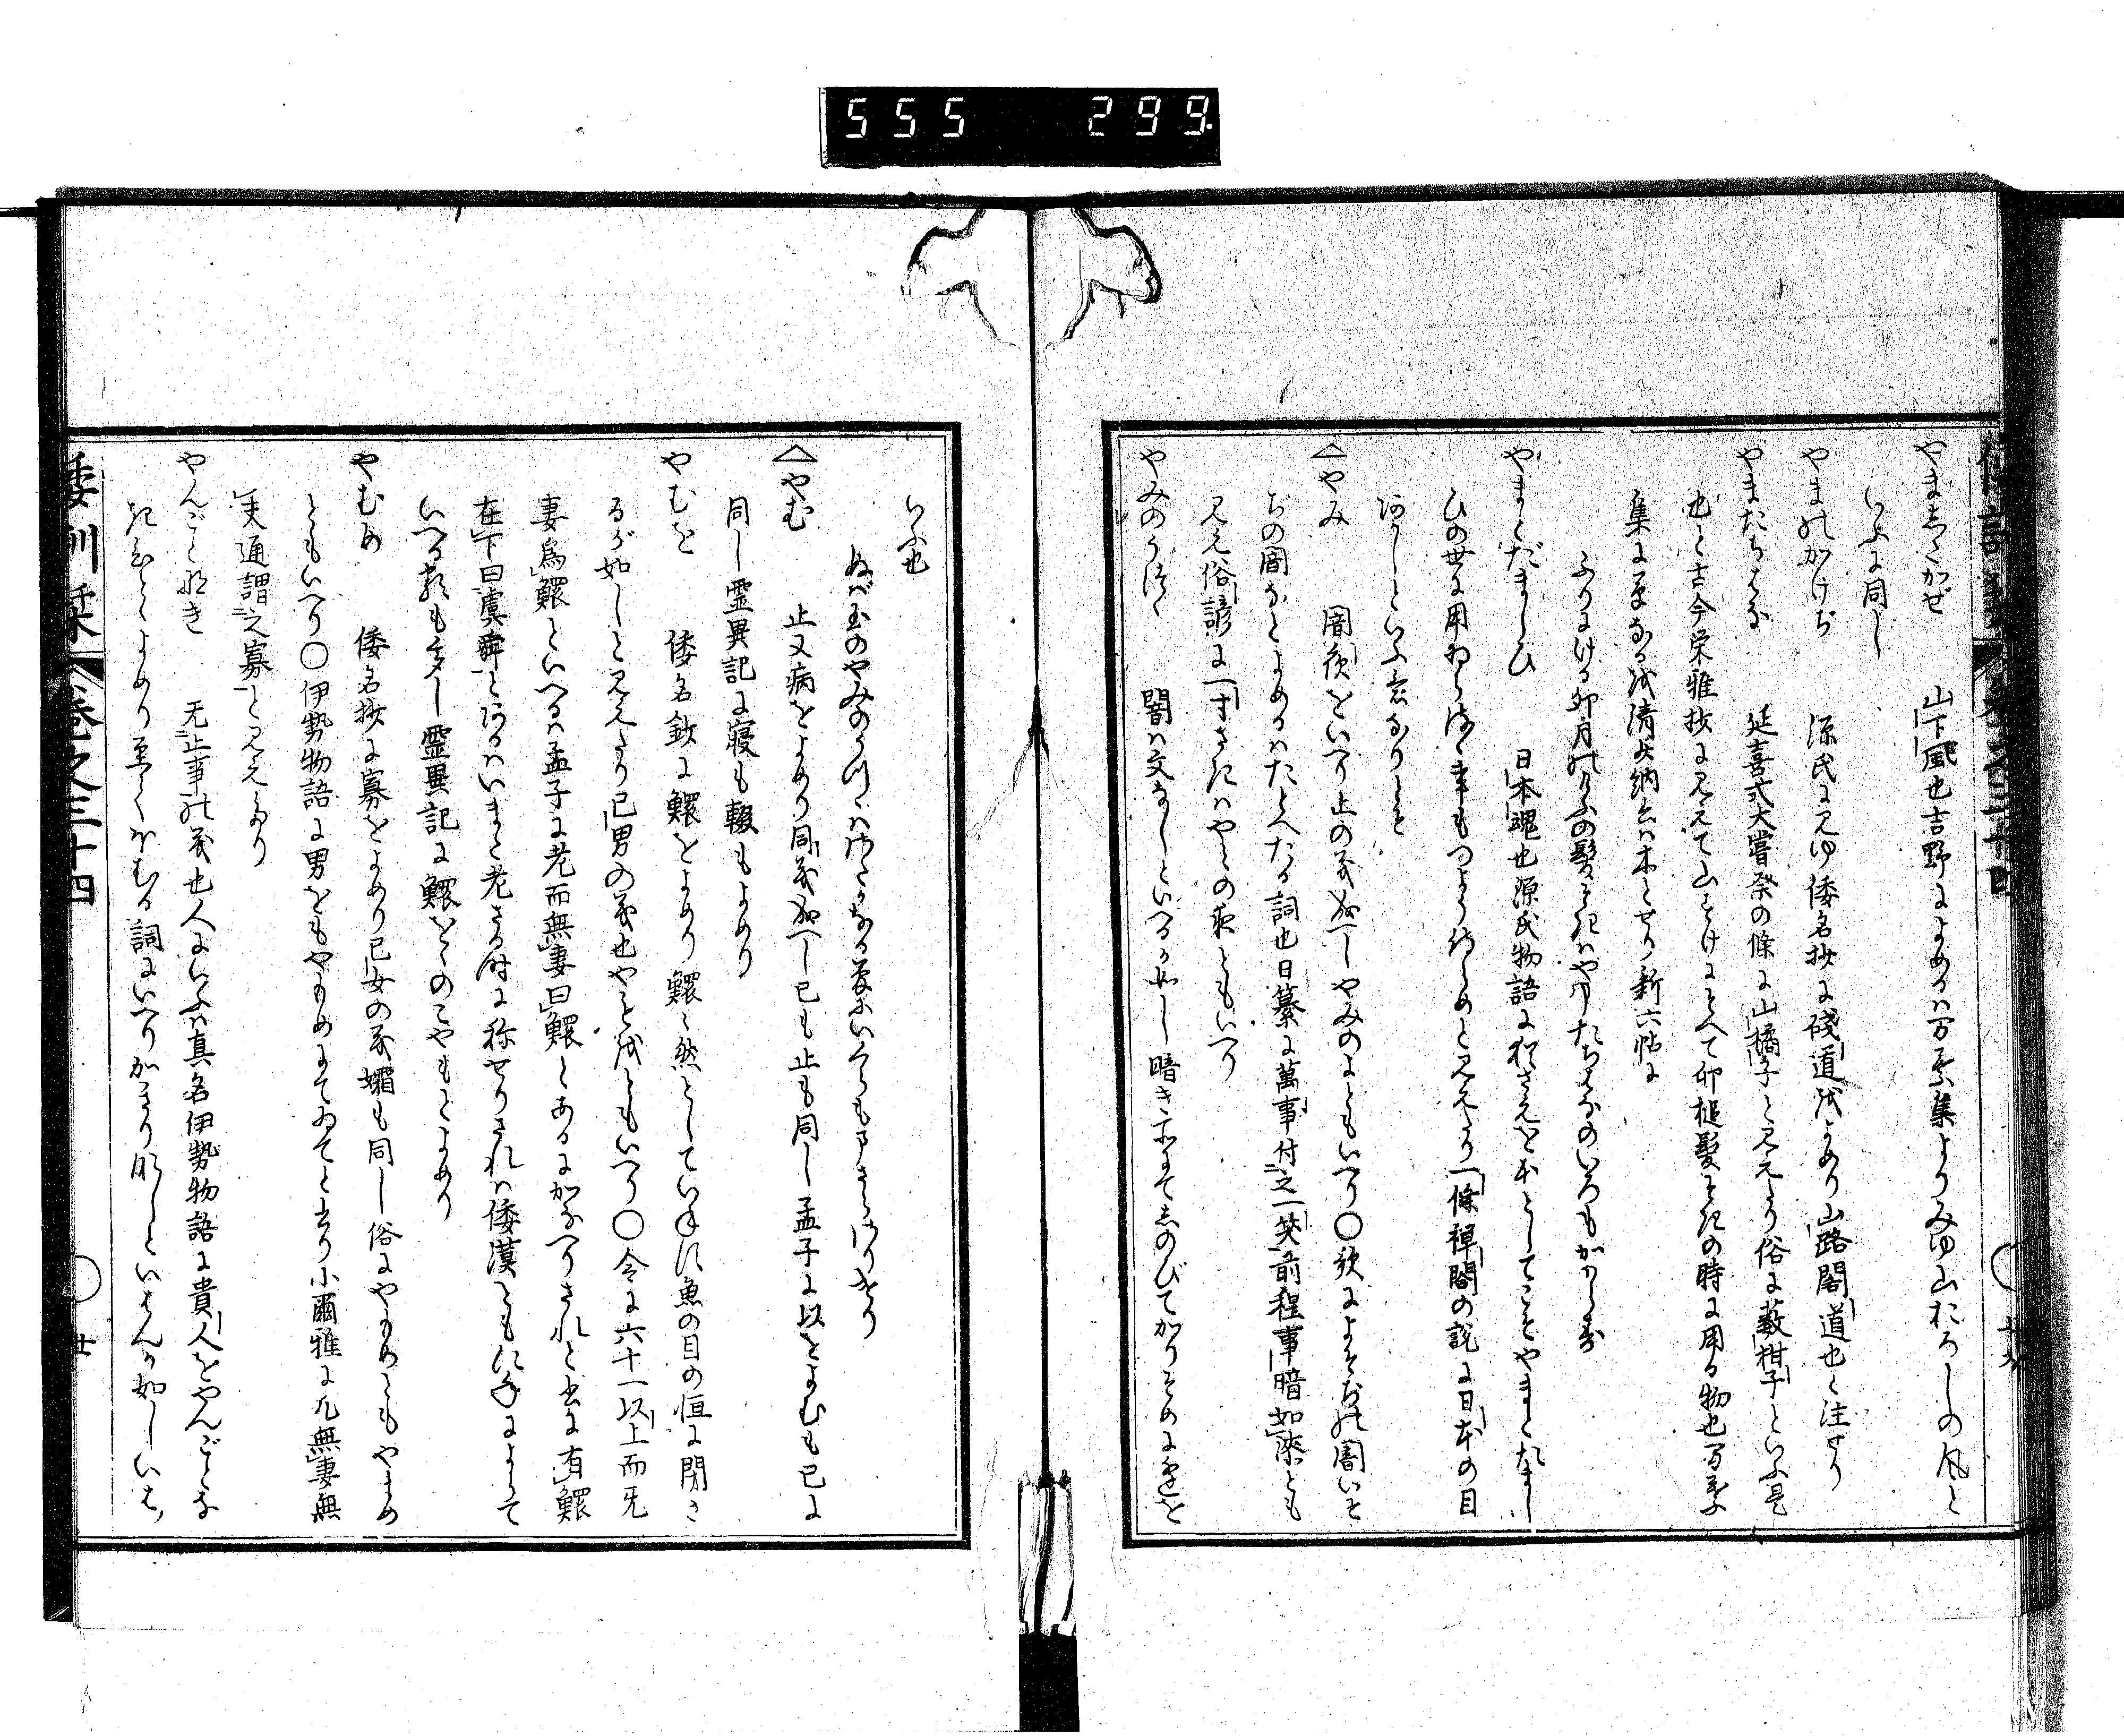 555 299
やましたかぜ 山下風也吉野によめるハ万葉集よりみゆ山おろしの風と
いふに同し
やまのかけぢ 源氏にみゆ倭名抄に磴道をよめり山路閣道也と注せり
やまたちばな 延喜式大嘗祭の條に山橘子と見えたり俗に藪柑子といふ是
也と古今栄雅抄に見えて山をけにそへて卯槌髪そきの時に用る物也万葉
集に草なるを清少納言ハ木とせり新六帖に
ふりにける卯月のけふの髪そきハやまたちはなのいろもかハらす
やまとだましひ 日本魂也源氏物語に猶さえを本としてこそやまとたまし
ひの世に用ゐらるゝ事もつよう侍らめと見えたり一條禅閤の説に日本の目
あかしといふ意なりとそ
△やみ 闇夜をいへり止の義成へしやみのよともいへり〇歌によそぢの闇いそ
ぢの闇なとよめるハたとへたる詞也日纂に萬事付之一笑前程事暗如漆とも
見え俗諺に一寸さきハやみの夜ともいへり
やみのうつゝ 闇ハ文なしといへるか如し暗き所にて忍のびてかりそめに逢を
いふ也
ぬバ玉のやみのうつゝハたしかなる夢にいくらもまさらさりけり
△やむ 止又病をよめり同義成へし已も止も同し孟子に以をよむも已に
同し霊異記に寝も輟もよめり
やむを 倭名鈔に鰥をよめり鰥々然としていねず魚の目の恒に閉さ
るが如しと見えたり已男の義也やもをともいへり〇令に六十一以上而无
妻為鰥といへるハ孟子に老而無妻曰鰥とあるにかなへりされと書に有鰥
在下曰虞舜とあるハいまた老さる時に称せりされハ倭漢ともに年によらて
いへる類も多し霊異記に鰥をとのこやもとよめり
やむめ 倭名抄に寡をよめり已女の義孀も同し俗にやもめともやまめ
ともいへり〇伊勢物語に男をもやもめにてゐてと書り小爾雅に凡無妻無
夫通謂之寡と見えたり
やんごとなき 无止事の義也人にいふハ真名伊勢物語に貴人をやんごとな
きひとゝよめり至てほむる詞にいへりかきり
なしといはんか如しいさゝ
倭訓栞 巻之三十四 廿